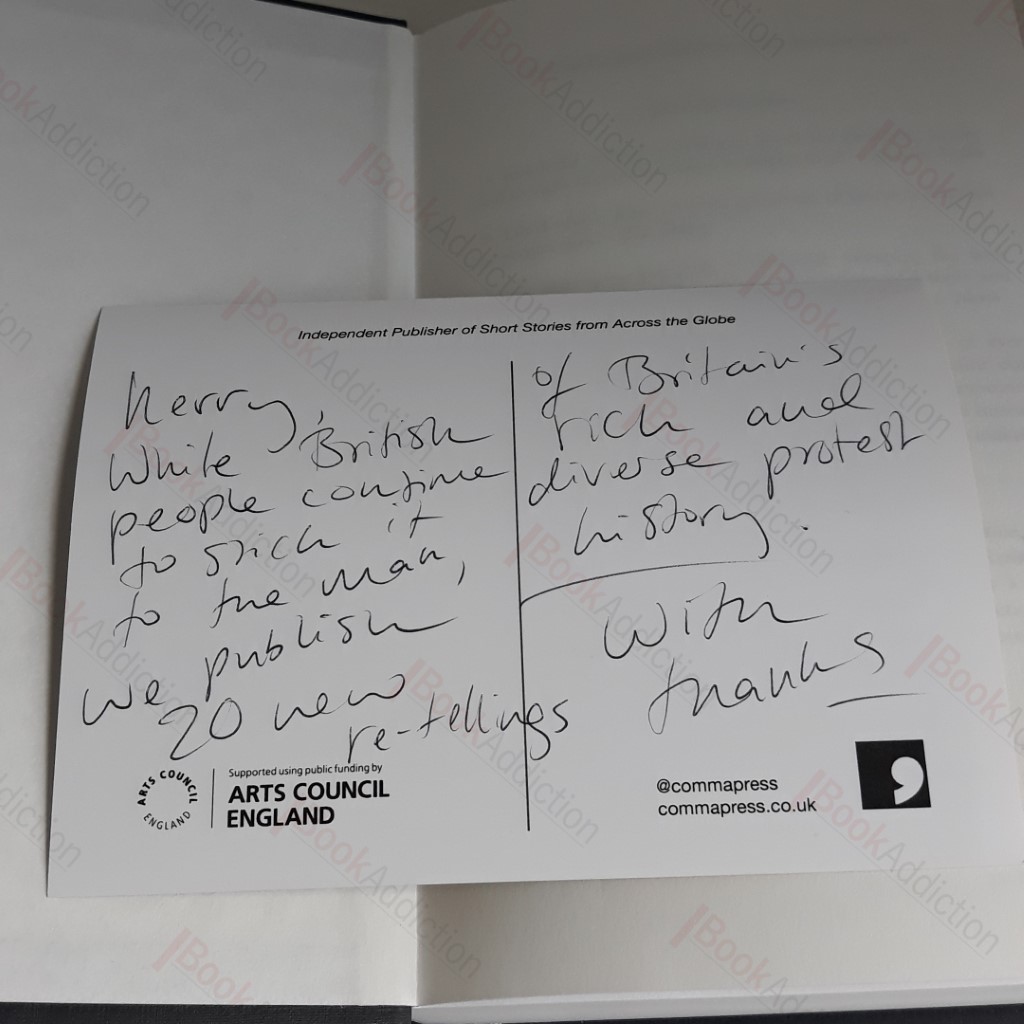 Independent Publisher of Short Stories from Across the Globe
Kerry,
While British
people continue
to stick it
to the man,
we publish
20 new
re-tellings
of Britain's
rich and
diverse protest
history.
With
thanks
ARTS COUNCIL
ENGLAND
Supported using public funding by
ARTS COUNCIL
ENGLAND
@commapress
commapress.co.uk
BookAddiction